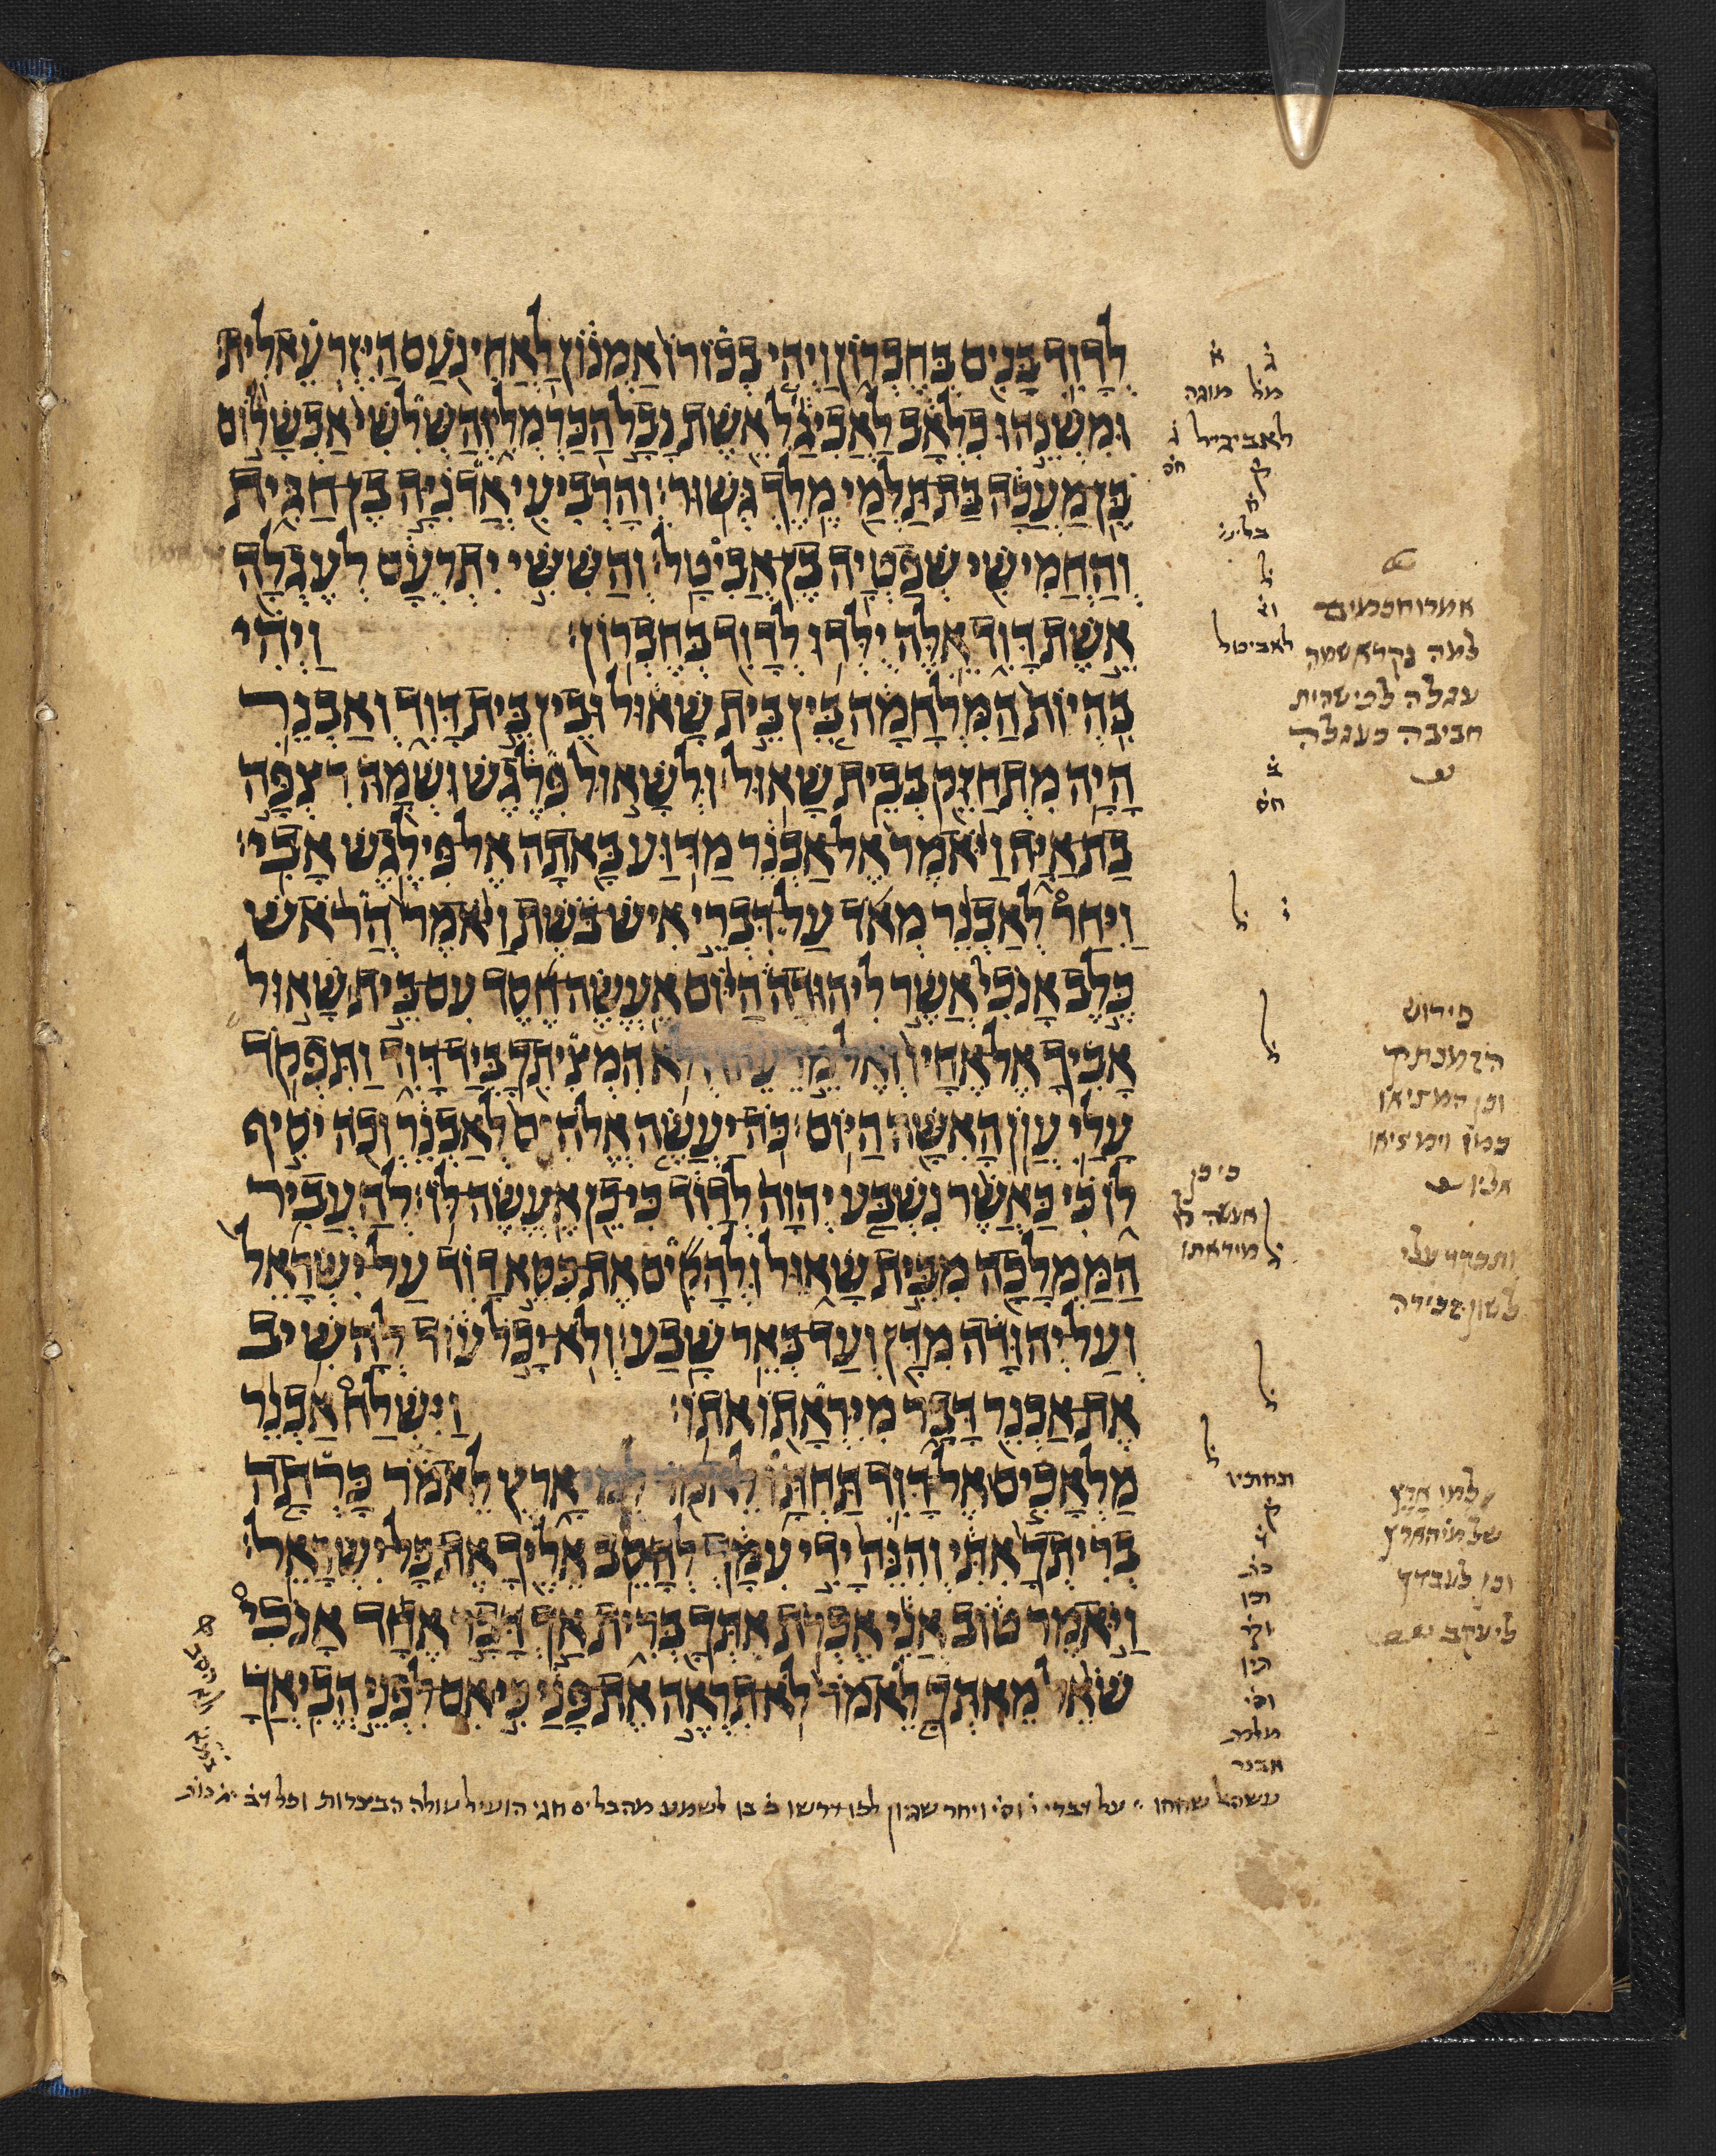 לְדָוִד בָּנִים בְּחֶבְרוֹן וַיְהִי בְכוֹרוֹ אַמְנוֹן לַאֲחִינֹעַם הַיִּזְרְעֵאלִית׃
וּמִשְׁנֵהוּ כִלְאָב לַאֲבִיגַל אֵשֶׁת נָבָל הַכַּרְמְלִי וְהַשְּׁלִשִׁי אַבְשָׁלוֹם
בֶּן מַעֲכָה בַּת תַּלְמַי מֶלֶךְ גְּשׁוּר׃ וְהָרְבִיעִי אֲדֹנִיָּה בֶן חַגִּית
וְהַחֲמִישִׁי שְׁפַטְיָה בֶן אֲבִיטָל׃ וְהַשִּׁשִּׁי יִתְרְעָם לְעֶגְלָה
אֵשֶׁת דָּוִד אֵלֶּה יֻלְּדוּ לְדָוִד בְּחֶבְרוֹן׃ וַיְהִי
בִּהְיוֹת הַמִּלְחָמָה בֵּין בֵּית שָׁאוּל וּבֵין בֵּית דָּוִד וְאַבְנֵר
הָיָה מִתְחַזֵּק בְּבֵית שָׁאוּל׃ וּלְשָׁאוּל פִּלֶגֶשׁ וּשְׁמָהּ רִצְפָּה
בַת אַיָּה וַיֹּאמֶר אֶל אַבְנֵר מַדּוּעַ בָּאתָה אֶל פִּילֶגֶשׁ אָבִי׃
וַיִּחַר לְאַבְנֵר מְאֹד עַל דִּבְרֵי אִישׁ בֹּשֶׁת וַיֹּאמֶר הֲרֹאשׁ
כֶּלֶב אָנֹכִי אֲשֶׁר לִיהוּדָה הַיּוֹם אֶעֱשֶׂה חֶסֶד עִם בֵּית שָׁאוּל
אָבִיךָ אֶל אֶחָיו וְאֶל מֵרֵעֵהוּ וְלֹא הִמְצִיתִךָ בְּיַד דָּוִד וַתִּפְקֹד
עָלַי עֲוֹן הָאִשָּׁה הַיּוֹם׃ כֹּה יַעֲשֶׂה אֱלֹהִים לְאַבְנֵר וְכֹה יֹסִיף
לוֹ כִּי כַּאֲשֶׁר נִשְׁבַּע יְהוָה לְדָוִד כִּי כֵן אֶעֱשֶׂה לּוֹ׃ לְהַעֲבִיר
הַמַּמְלָכָה מִבֵּית שָׁאוּל וּלְהָקִים אֶת כִּסֵּא דָוִד עַל יִשְׂרָאֵל
וְעַל יְהוּדָה מִדָּן וְעַד בְּאֵר שָׁבַע׃ וְלֹא יָכֹל עוֹד לְהָשִׁיב
אֶת אַבְנֵר דָּבָר מִיִּרְאָתוֹ אֹתוֹ׃ וַיִּשְׁלַח אַבְנֵר
מַלְאָכִים אֶל דָּוִד תַּחְתָּו לֵאמֹר לְמִי אָרֶץ לֵאמֹר כָּרְתָה
בְרִיתְךָ אִתִּי וְהִנֵּה יָדִי עִמָּךְ לְהָסֵב אֵלֶיךָ אֶת כָּל יִשְׂרָאֵל׃
וַיֹּאמֶר טוֹב אֲנִי אֶכְרֹת אִתְּךָ בְּרִית אַךְ דָּבָר אֶחָד אָנֹכִי
שֹׁאֵל מֵאִתְּךָ לֵאמֹר לֹא תִרְאֶה אֶת פָּנַי כִּי אִם לִפְנֵי הֱבִיאֲךָ
מל מוגה
לאביגיל
חס
לאביטל
חס
כי כן
אעשה לו
מיראתו
תחתיו
אבנר
אמרו חכמים
למה נקרא שמה
עגלה לפי שהית
חביבה כעגלה
פירוש
הזמנתיך
וכן המציאו
כמו וימציאו
אליו
ותפקד עלי
לשון זכירה
למי ארץ
וכן לעבדך
ליעקב